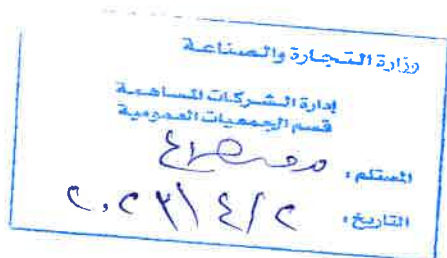 وزارة التجارة والصناعة
إدارة الشركات المساهمة
قسم الجمعيات العمومية
المستلم :
التاريخ : ٢٠٢٣/٤/٢